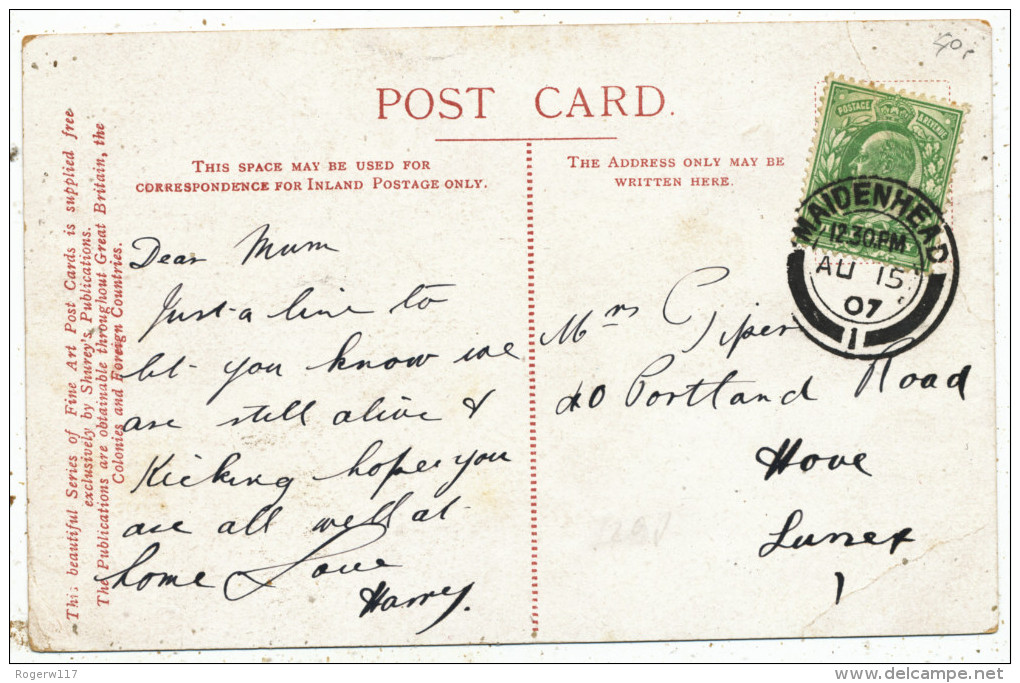 POST CARD.
THIS SPACE MAY BE USED FOR
CORRESPONDENCE FOR INLAND POSTAGE ONLY.
THE ADDRESS ONLY MAY BE
WRITTEN HERE.
This beautiful Series of Fine Art Post Cards is supplied free
exclusively by Shurey's Publications.
The Publications are obtainable throughout Great Britain, the
Colonies and Foreign Countries.
POSTAGE REVENUE
MAIDENHEAD
12.30PM
AU 15
07
1
Dear Mum
Just a line to
let you know we
are still alive &
Kicking hope you
are all well at
home Love
Harry.
Mrs Piper
40 Portland Road
Hove
Sussex
Rogerw117
www.delcampe.net